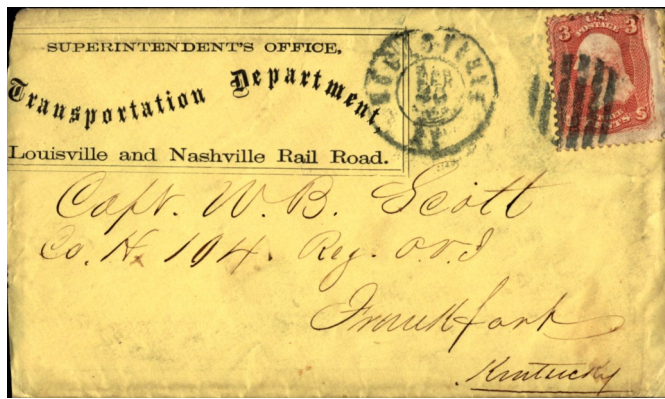 SUPERINTENDENT'S OFFICE,
Transportation Department,
Louisville and Nashville Rail Road.
LOUISVILLE
FEB
KY
3 U.S. 3
POSTAGE
Capt. W. B. Scott
Co. H. 104. Reg. O.V.I
Frankfort
Kentucky